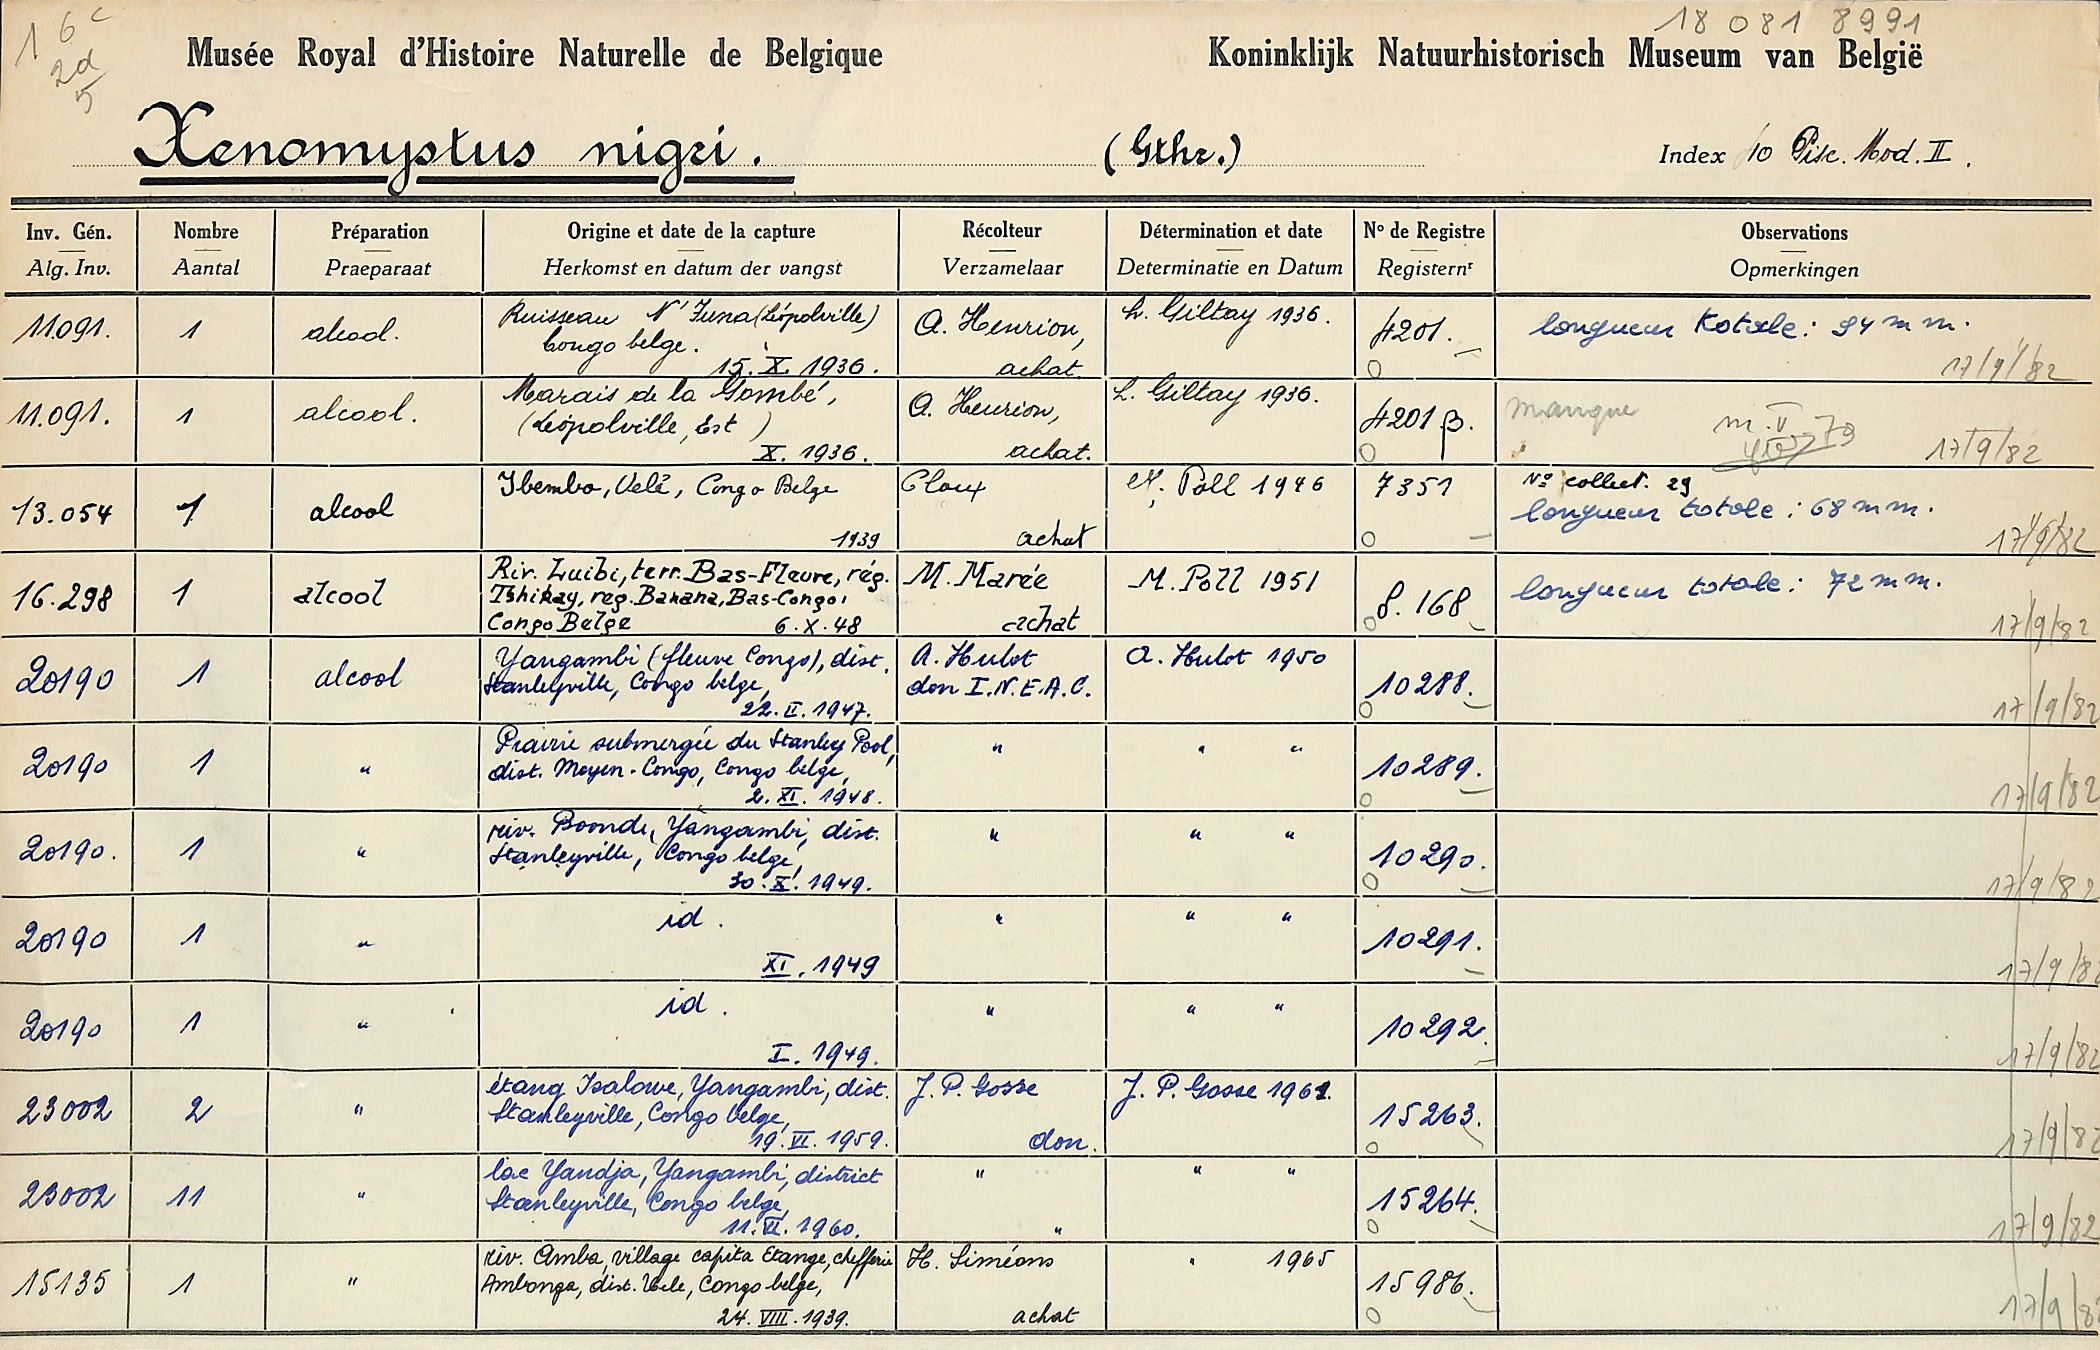 16c
2d
5
18 081 8991
Musée Royal d'Histoire Naturelle de Belgique Koninklijk Natuurhistorisch Museum van België
Xenomystus nigri. (Gthr.) Index 10 Pisc. Mod. II.
Inv. Gén. Nombre Préparation Origine et date de la capture Récolteur Détermination et date No de Registre Observations
Alg. Inv. Aantal Praeparaat Herkomst en datum der vangst Verzamelaar Determinatie en Datum Registernr Opmerkingen
11.091. 1 alcool. Ruisseau (Léopolville) A. Henrion, L. Giltay 1936. 4201. longueur totale: 94 mm.
Congo belge.
15. X. 1936. achat 17/9/82
11.091. 1 alcool. Marais de la Gombé, A. Henrion, L. Giltay 1936. 4201 β. manque
(Léopolville, Est)
X. 1936. achat. 17/9/82
13.054 1 alcool Ibembo, Uelé, Congo Belge M. Poll 1946 7351 No collect. 29
longueur totale: 68 mm.
1939 achat 17/9/82
16.298 1 alcool Riv. Luibi, terr. Bas-Fleuve, rég. M. Marée M. Poll 1951 8.168 longueur totale: 72 mm.
Tshikay, reg. Banana, Bas-Congo,
Congo Belge 6.X.48 achat 17/9/82
20190 1 alcool Yangambi (fleuve Congo), dist. A. Hulot A. Hulot 1950 10288.
Stanleyville, Congo belge, don I.N.E.A.C.
22. II. 1947. 17/9/82
20190 1 " Prairie submergée du Stanley Pool, " " " 10289.
dist. Moyen-Congo, Congo belge,
2. XI. 1948. 17/9/82
20190. 1 " riv. Boonde, Yangambi, dist. " " " 10290.
Stanleyville, Congo belge,
30. X. 1949. 17/9/82
20190 1 " id. " " " 10291.
XI. 1949 17/9/82
20190 1 " id. " " " 10292.
I. 1949. 17/9/82
23002 2 " étang Isalowe, Yangambi, dist. J. P. Gosse J. P. Gosse 1961. 15263.
Stanleyville, Congo belge,
19. VI. 1959. don. 17/9/82
23002 11 " lac Yandja, Yangambi, district " " " 15264.
Stanleyville, Congo belge,
11. 1960. " 17/9/82
15135 1 " riv. Amba, village capita Etange, chefferie H. Siméons " 1965 15986.
Ambonga, dist. Uele, Congo belge,
24. VIII. 1939. achat 17/9/82